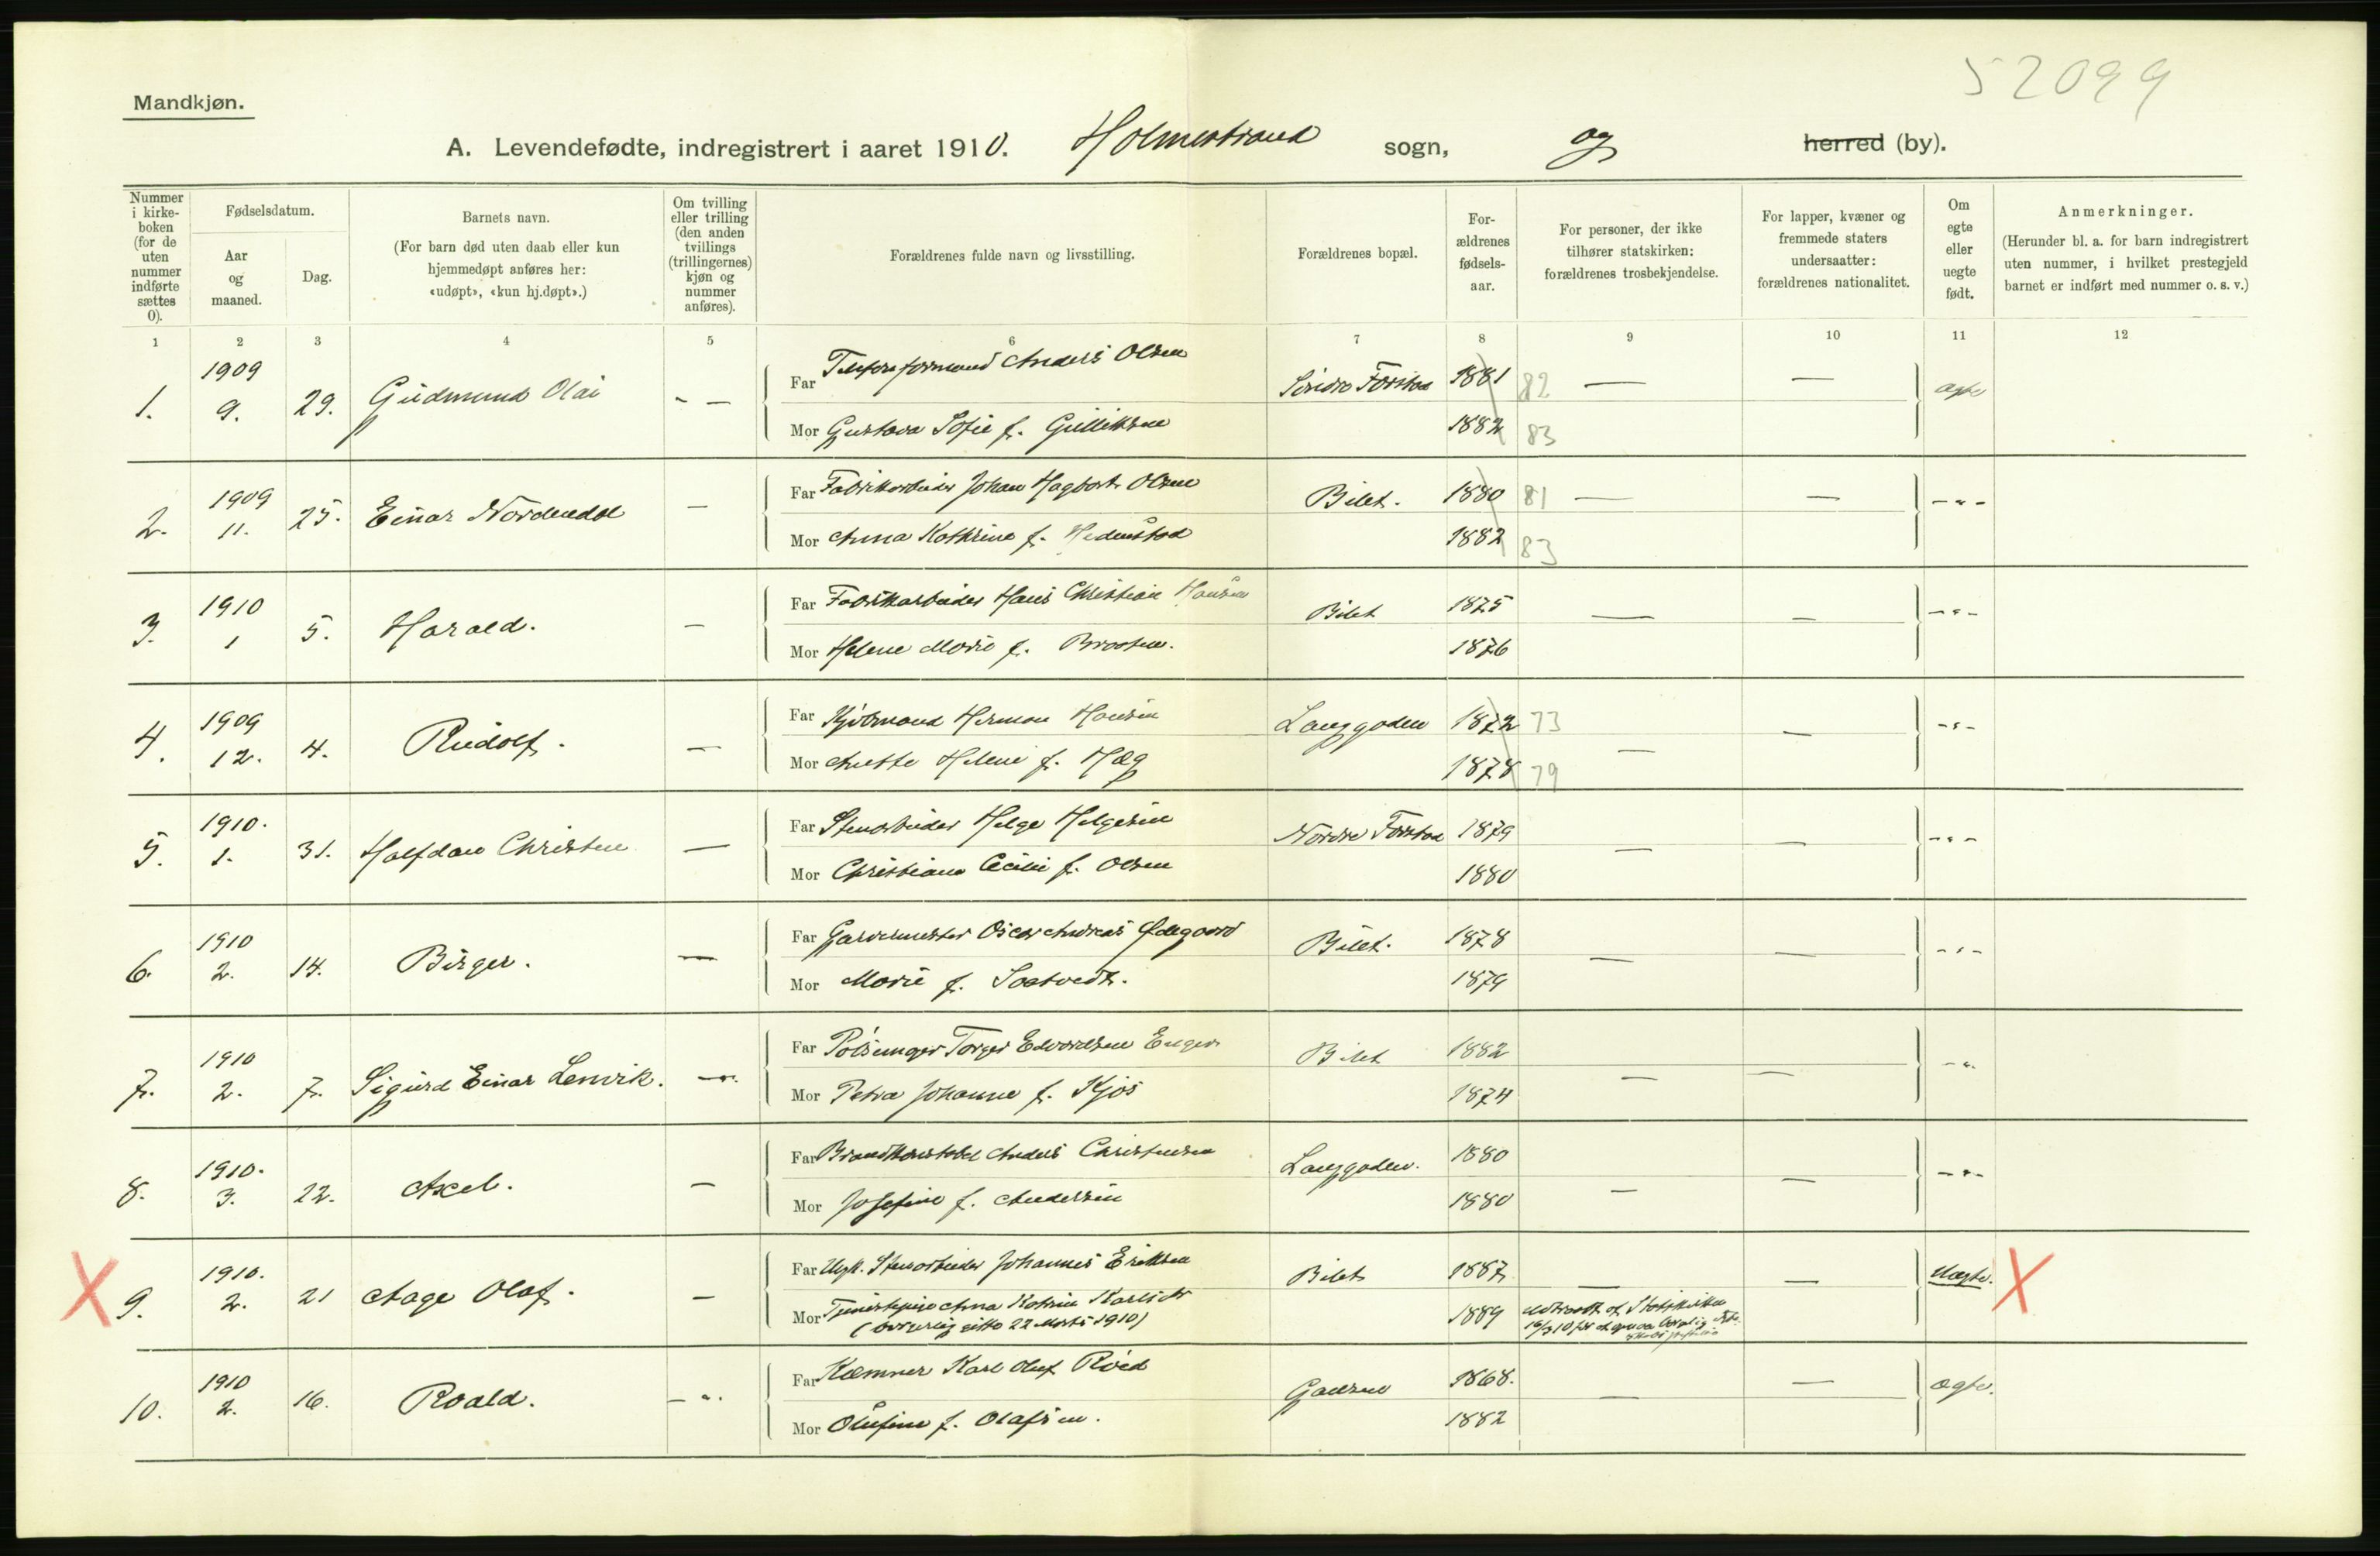 52099
Mandkjøn.
A. Levendefødte, indregistrert i aaret 1910. Holmestrand sogn, og herred (by).
Nummer i kirke-boken (for de uten nummer indførte sættes 0).
Fødselsdatum.
Aar og maaned.
Dag.
Barnets navn.
(For barn død uten daab eller kun hjemmedøpt anføres her: «udøpt», «kun hj.døpt».)
Om tvilling eller trilling (den anden tvillings (trillingernes) kjøn og nummer anføres).
Forældrenes fulde navn og livsstilling.
Forældrenes bopæl.
For-ældrenes fødsels-aar.
For personer, der ikke tilhører statskirken: forældrenes trosbekjendelse.
For lapper, kvæner og fremmede staters undersaatter: forældrenes nationalitet.
Om egte eller uegte født.
Anmerkninger.
(Herunder bl. a. for barn indregistrert uten nummer, i hvilket prestegjeld barnet er indført med nummer o. s. v.)
1 2 3 4 5 6 7 8 9 10 11 12
1. 1909 9. 29. Gudmund Olai - — Far Anders Olsen Søndre Forstad 1881 82 — — ægte
Mor Gustava Sofie f. Gulliksen 1882 83
2. 1909 11. 25. Einar Nordendal — Far Fabrikarbeider Johan Hagbart Olsen Bilet. 1880 81 — — -"-
Mor Anna Kathrine f. Hedenstad 1882 83
3. 1910 1 5. Harald. — Far Fabrikarbeider Hans Christian Hansen Bilet 1875 — — -"-
Mor Helene Marie f. Braaten. 1876
4. 1909 12. 4. Rudolf. — Far Kjøbmand Herman Hansen Langgaden 1872 73 — — -"-
Mor Anette Helene f. Hæg 1878 79
5. 1910. 1. 31. Halfdan Christen — Far Stenarbeider Helge Helgesen Nordre Forstad 1879 — — -"-
Mor Christiane Cecilie f. Olsen 1880
6. 1910 2. 14. Birger. — Far Garvermester Oscar Andreas Ødegaard Bilet. 1878 — — -"-
Mor Marie f. Sostvedt. 1879
7. 1910 2. 7. Sigurd Einar Lenvik. -"- Far Torger Edvardsen Enger Bilet 1882 — — -"-
Mor Petra Johanne f. Kjøs 1874
8. 1910. 3. 22. Axel. — Far Brandkonstabel Anders Christensen Langgaden. 1880 — — -"-
Mor Josefine f. Andersen 1880
X 9. 1910. 2. 21 Aage Olaf. — Far Ungk. Stenarbeider Johannes Eriksen Bilet 1887 — — Uægte. X
Mor Tjenestepige Anna Katrine Karlsdtr 1889 Udtraadt af Statskirken
( gifte 22 Marts 1910) 16/3 10
10. 1910 2. 16. Roald. -"- Far Kæmner Karl Oluf Röed Gausen 1868. — — ægte.
Mor Olufine f. Olafsen. 1882